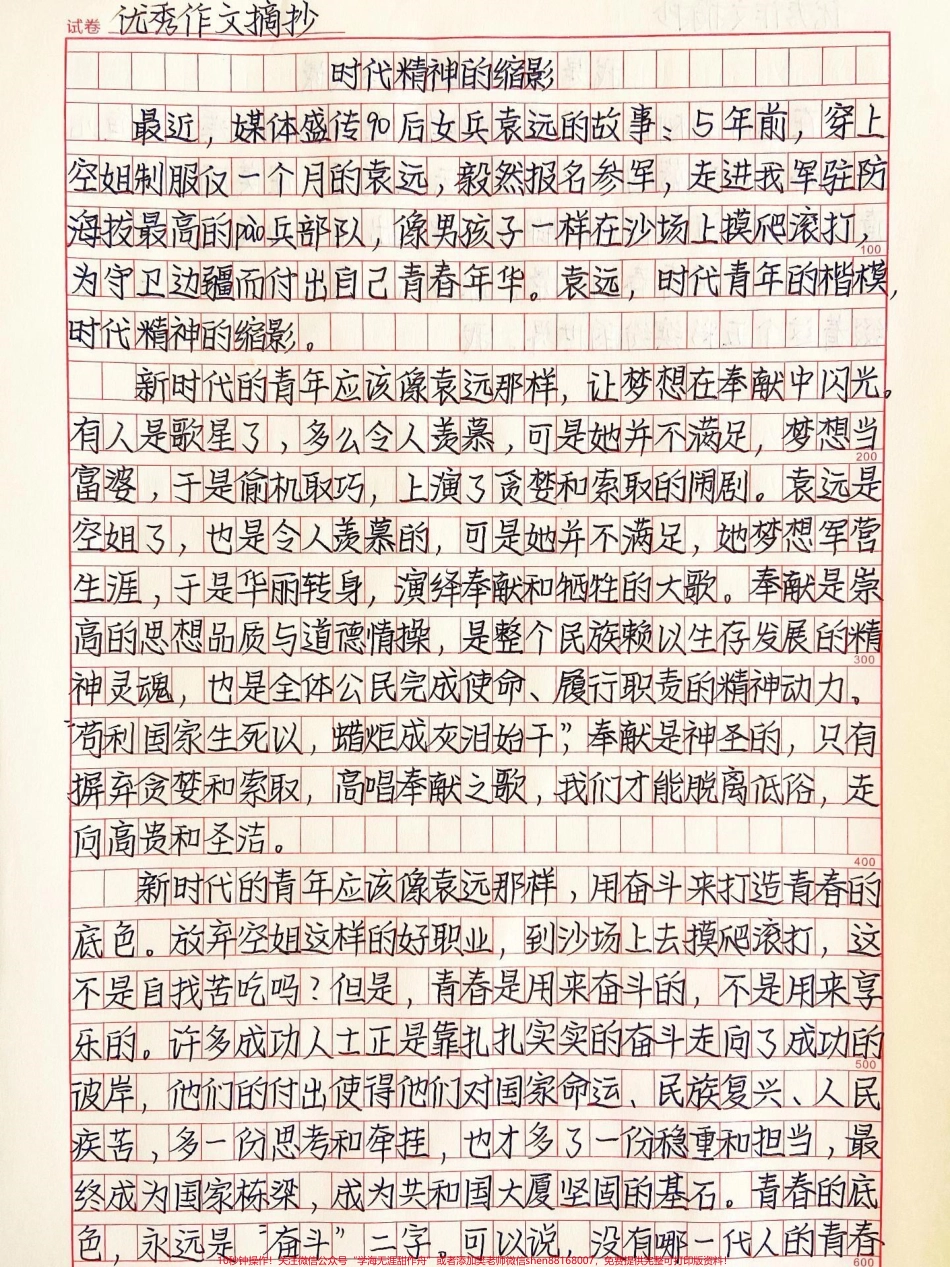 试卷 优秀作文摘抄
时代精神的缩影
最近，媒体盛传90后女兵袁远的故事：5年前，穿上
空姐制服仅一个月的袁远，毅然报名参军，走进我军驻防
海拔最高的pao兵部队，像男孩子一样在沙场上摸爬滚打，
100
为守卫边疆而付出自己青春年华。袁远，时代青年的楷模，
时代精神的缩影。
新时代的青年应该像袁远那样，让梦想在奉献中闪光。
有人是歌星了，多么令人羡慕，可是她并不满足，梦想当
200
富婆，于是偷机取巧，上演了贪婪和索取的闹剧。袁远是
空姐了，也是令人羡慕的，可是她并不满足，她梦想军营
生涯，于是华丽转身，演绎奉献和牺牲的大歌。奉献是崇
高的思想品质与道德情操，是整个民族赖以生存发展的精
300
神灵魂，也是全体公民完成使命、履行职责的精神动力。
“苟利国家生死以，蜡炬成灰泪始干”，奉献是神圣的，只有
摒弃贪婪和索取，高唱奉献之歌，我们才能脱离低俗，走
向高贵和圣洁。
400
新时代的青年应该像袁远那样，用奋斗来打造青春的
底色。放弃空姐这样的好职业，到沙场上去摸爬滚打，这
不是自找苦吃吗？但是，青春是用来奋斗的，不是用来享
乐的。许多成功人士正是靠扎扎实实的奋斗走向了成功的
500
彼岸，他们的付出使得他们对国家命运、民族复兴、人民
疾苦，多一份思考和牵挂，也才多了一份稳重和担当，最
终成为国家栋梁，成为共和国大厦坚固的基石。青春的底
色，永远是“奋斗”二字。可以说，没有哪一代人的青春
10秒钟操作！关注微信公众号“学海无涯甜作舟”或者添加奥老师微信shen88168007，免费提供完整可打印版资料！
600